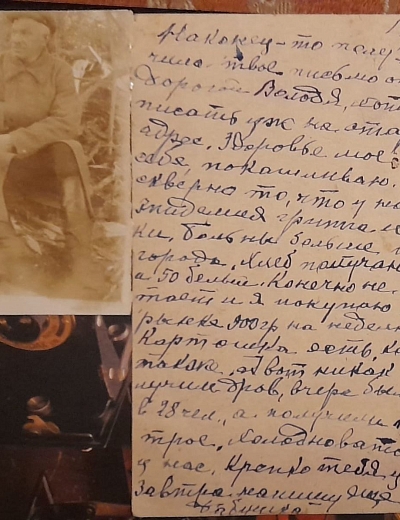 Наконец-то полу
чила твое письмо от
Дорогой Володя, хоте
писать уж на ста
адрес. Здоровье мое
себе, покашливаю.
скверно то, что у на
эпидемия гриппа и
ки. больны больше
города. Хлеб получаю
а 50 белый. Конечно не
тает и я покупаю
рынке 900 гр на неделю
Картошка есть, к
такое. Вот никак
лучим дров, вчера бы
в 28 чел., а получили
трое. Холодновато
у нас. Крепко тебя ц
завтра напишу еще
Бабушка